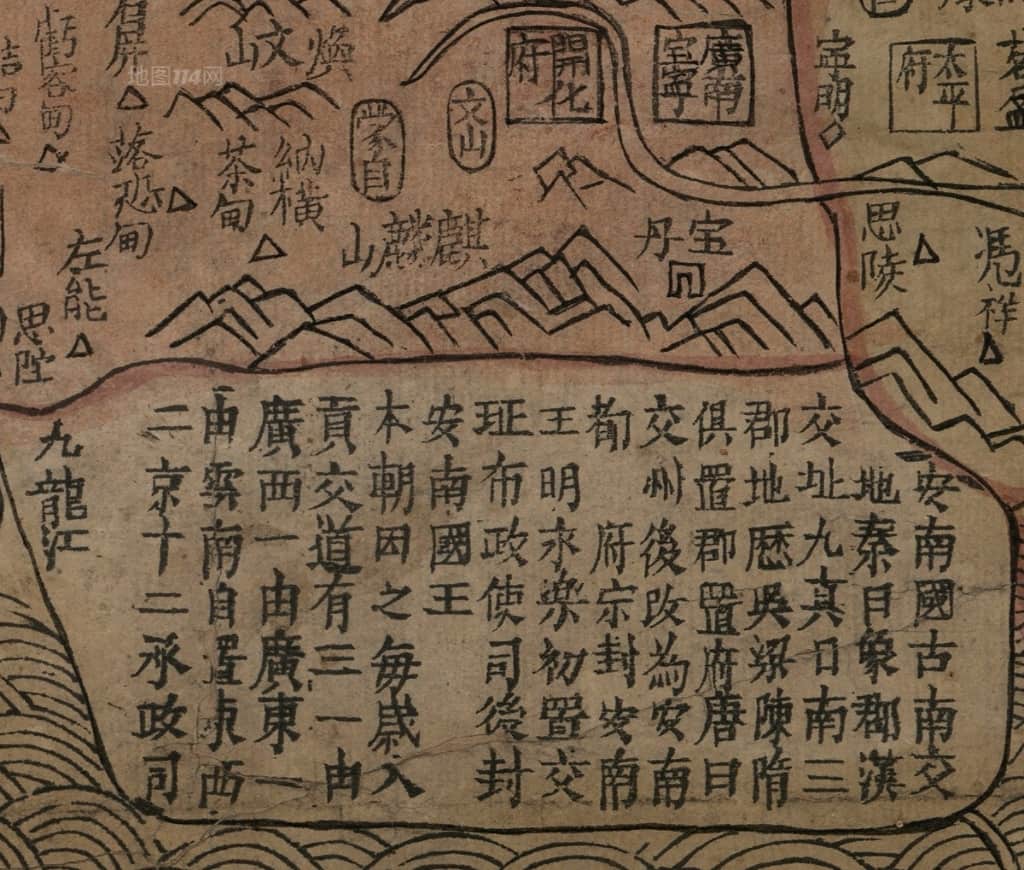 地图114网
石屏
虧容甸
文山
開化府
文山
廣南
宝寧
太平府
落恐甸
茶甸
納橫
蒙自
麒麟山
宝丹
思陵
馮祥
左能
思陀
九龍江
安南國古南交
地秦曰象郡漢
交址九真日南三
郡地歴吳梁陳隋
俱置郡置府唐曰
交州後改為安南
都 府宗封安南
王明永樂初置交
阯布政使司後封
安南國王
本朝因之每歲入
貢交道有三一由
廣西一由廣東一
由雲南自置東西
二京十二承政司